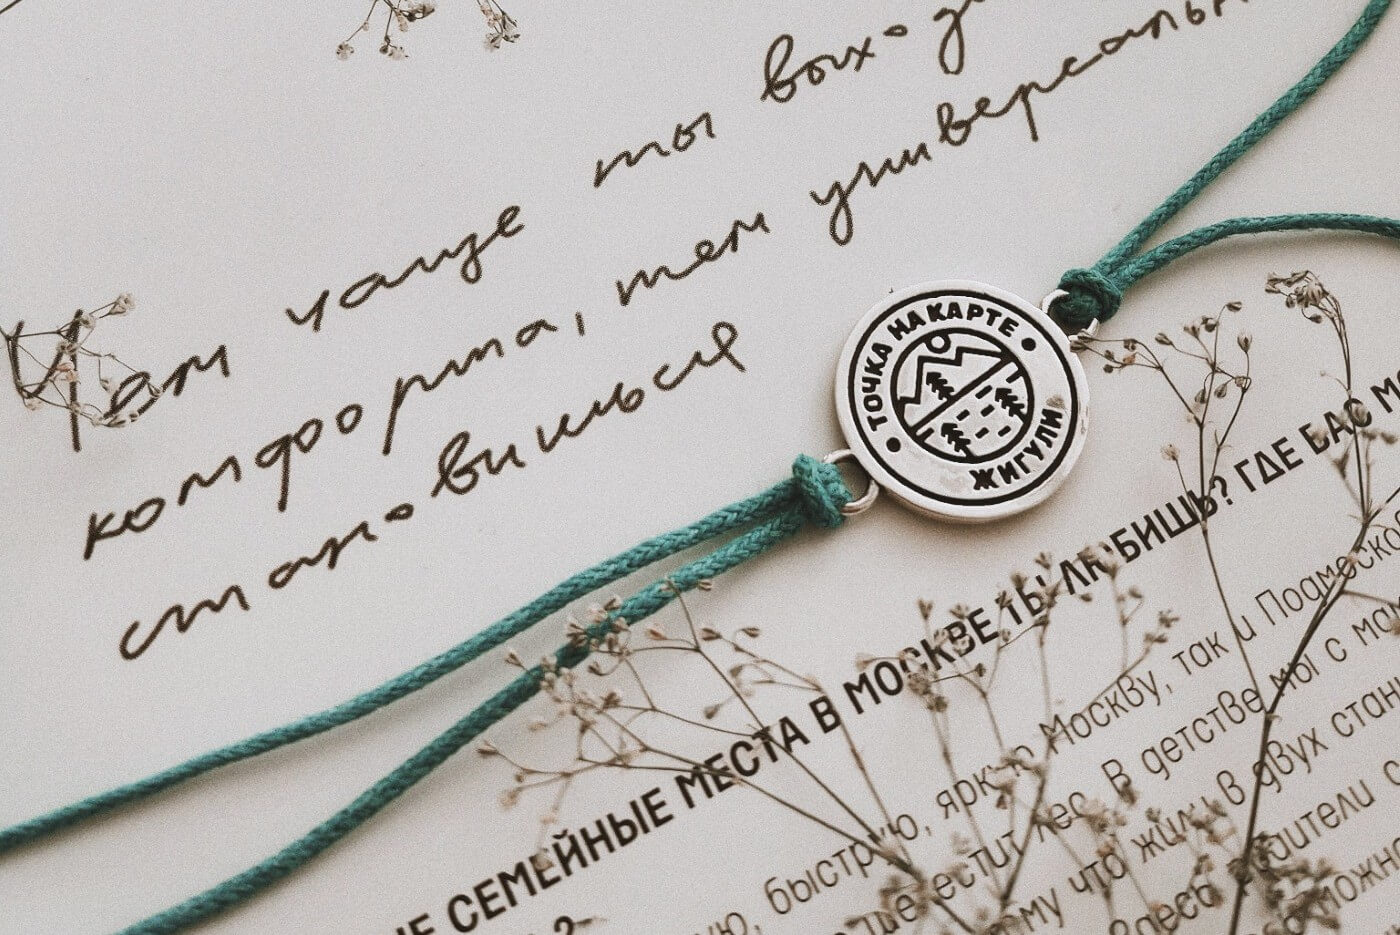 Чем чаще ты выхо
комфорта, тем универсаль
становишься
ТОЧКА НА КАРТЕ
ЖИГУЛИ
СЕМЕЙНЫЕ МЕСТА В МОСКВЕ ТЫ ЛЮБИШЬ? ГДЕ ВАС
быструю, яркую Москву, так и
лес. В детстве мы с
что жили в двух
Здесь родители